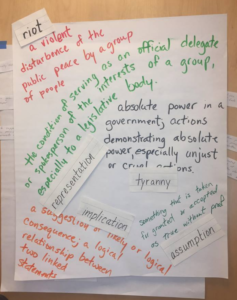 riot
a violent
disturbance of the
public peace by a group
of people
the condition of serving as an official delegate
or spokesperson of the interests of a group,
especially to a legislative body.
representation
absolute power in a
government; actions
demonstrating absolute
power, especially unjust
or cruel actions.
tyranny
implication
a suggestion of likely or logical
consequence; a logical
relationship between
two linked
statements
something that is taken
for granted or accepted
as true without proof
assumption